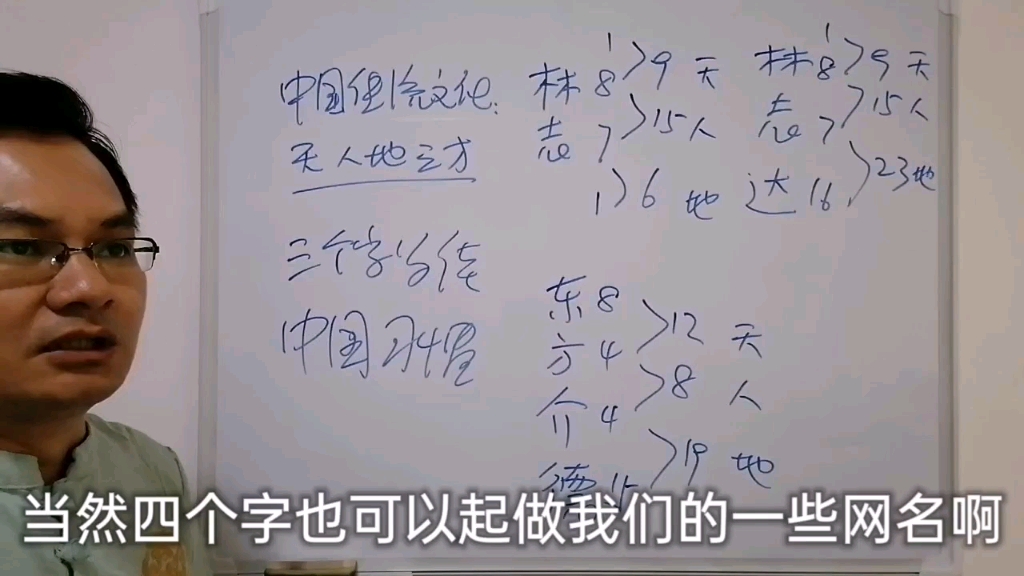 中国传统文化:
天人地之才
三个字以传
中国习惯
1
林 8 > 9 天
志 7 > 15 人
1 > 6 地
1
林 8 > 9 天
志 7 > 15 人
达 16 > 23 地
东 8
方 4 > 12 天
介 4 > 8 人
德 15 > 19 地
当然四个字也可以起做我们的一些网名啊